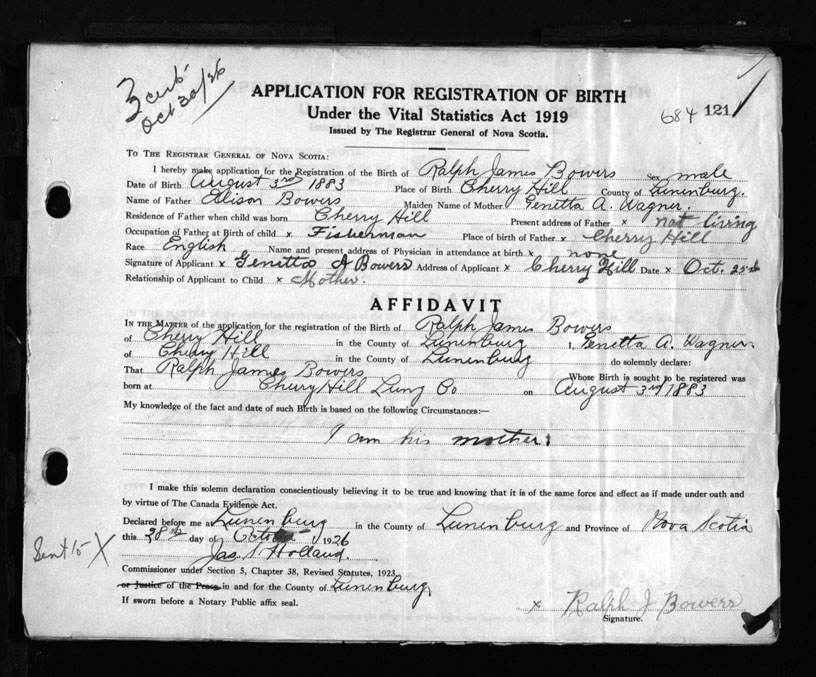 Oct 30/26
684 121
APPLICATION FOR REGISTRATION OF BIRTH
Under the Vital Statistics Act 1919
Issued by The Registrar General of Nova Scotia.
To The Registrar General of Nova Scotia:
I hereby make application for the Registration of the Birth of Ralph James Bowers Sex male
Date of Birth August 3rd 1883 Place of Birth Cherry Hill County of Lunenburg.
Name of Father Alison Bowers Maiden Name of Mother Genetta A. Wagner.
Residence of Father when child was born Cherry Hill Present address of Father x not living
Occupation of Father at Birth of child x Fisherman Place of birth of Father x Cherry Hill
Race English Name and present address of Physician in attendance at birth x none
Signature of Applicant x Genetta A Bowers Address of Applicant x Cherry Hill Date x Oct.
Relationship of Applicant to Child x Mother.
AFFIDAVIT
In the Matter of the application for the registration of the Birth of Ralph James Bowers
of Cherry Hill in the County of Lunenburg I, Genetta A. Wagner.
of Cherry Hill in the County of Lunenburg do solemnly declare:
That Ralph James Bowers Whose Birth is sought to be registered was
born at Cherry Hill Lung Co on August 3rd 1883
My knowledge of the fact and date of such Birth is based on the following Circumstances:—
I am his mother.
I make this solemn declaration conscientiously believing it to be true and knowing that it is of the same force and effect as if made under oath and
by virtue of The Canada Evidence Act.
Declared before me at Lunenburg in the County of Lunenburg and Province of Nova Scotia
this 28th day of October 1926
Jas. Holland.
Commissioner under Section 5, Chapter 38, Revised Statutes, 1923,
or Justice of the Peace in and for the County of Lunenburg
If sworn before a Notary Public affix seal.
Sent 15 X
x Ralph J Bowers
Signature.